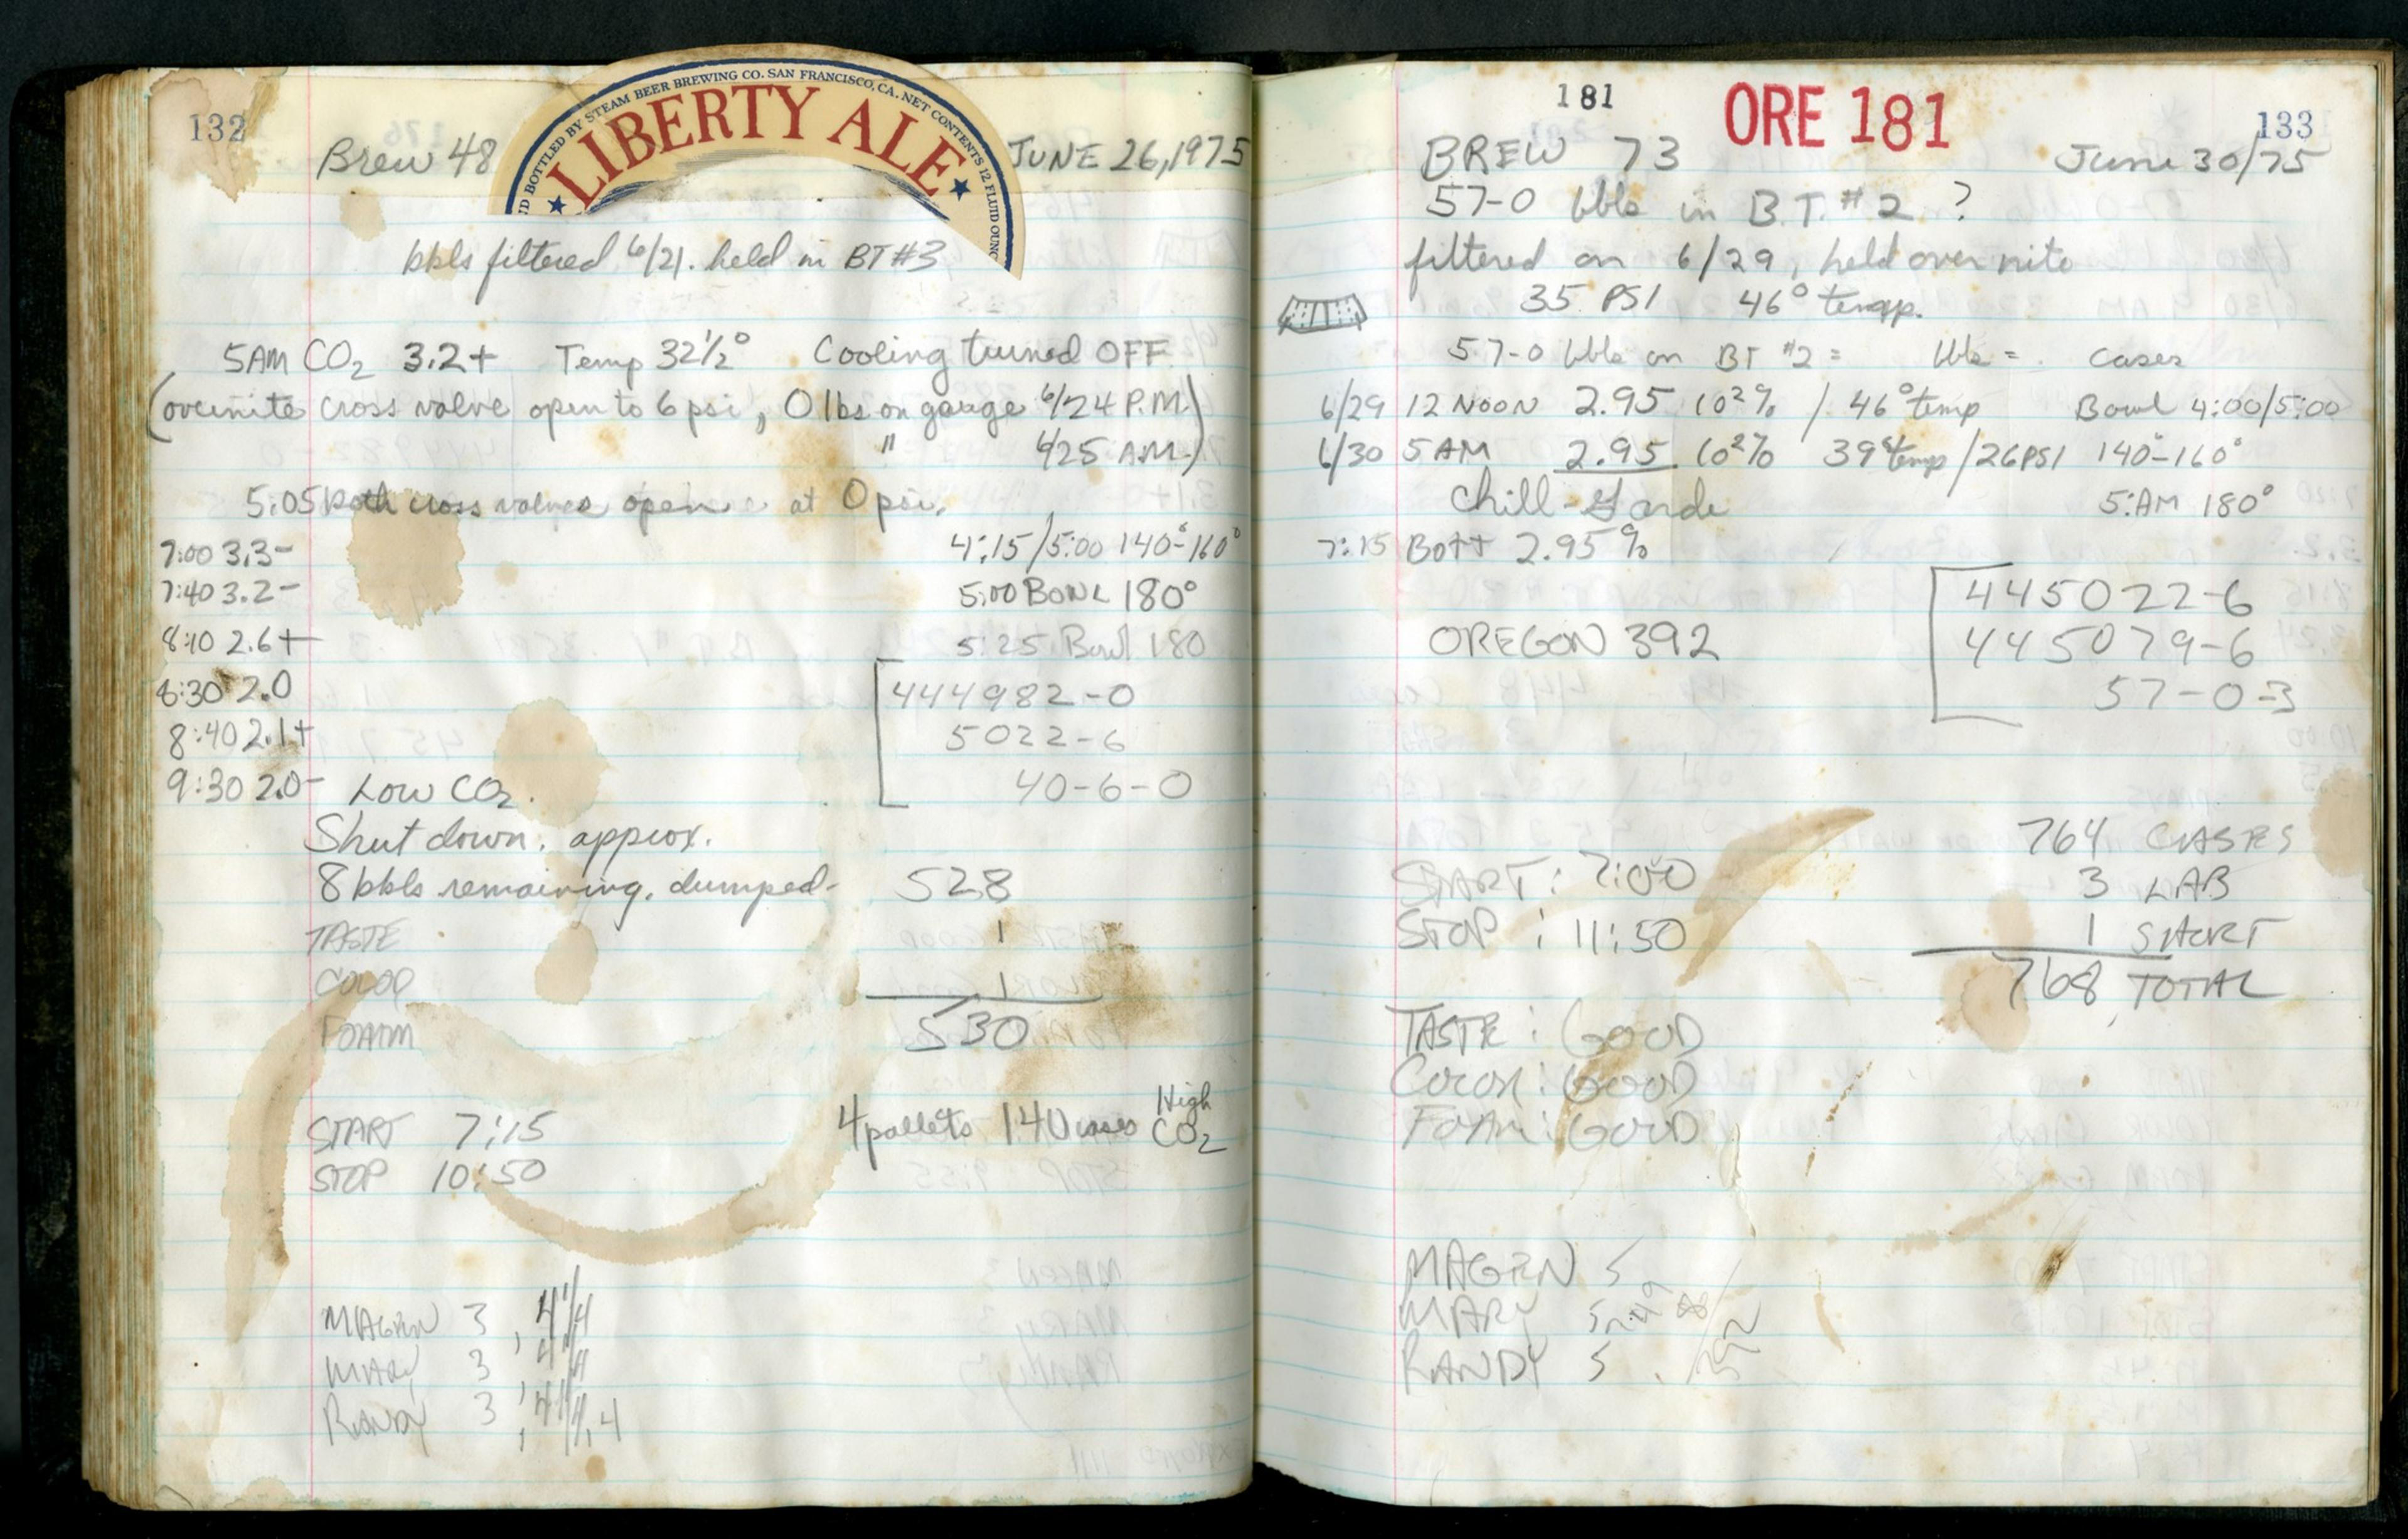 132
BOTTLED BY STEAM BEER BREWING CO. SAN FRANCISCO, CA. NET CONTENTS 12 FLUID OUNC
LIBERTY ALE
Brew 48 JUNE 26, 1975
bbls filtered 6/21. held in BT #3
5AM CO2 3.2+ Temp 32½° Cooling turned OFF
(overnite cross valve open to 6 psi, 0 lbs on gauge 6/24 P.M.)
" 6/25 A.M.)
5:05 both cross valves open at 0 psi.
7:00 3.3- 4:15/5:00 140°-160°
7:40 3.2- 5:00 BOWL 180°
8:10 2.6+ 5:25 Bowl 180
8:30 2.0 444982-0
8:40 2.1+ 5022-6
9:30 2.0- LOW CO2. 40-6-0
Shut down. approx.
8 bbls remaining. dumped- 528
TASTE 1
COLOR 1
FOAM 530
START 7:15 4 pallets 140 cases High CO2
STOP 10:50
MAGEN 3
MARY 3
RANDY 3
181 ORE 181 133
BREW 73 June 30/75
57-0 bbls in B.T. #2 ?
filtered on 6/29, held over nite
35 PSI 46° temp.
57-0 bbls on BT #2 = bbls = . cases
6/29 12 NOON 2.95 CO2% / 46° temp Bowl 4:00/5:00
6/30 5 AM 2.95 CO2% 39° temp / 26 PSI 140°-160°
Chill-Garde 5:AM 180°
7:15 Bott 2.95%
445022-6
OREGON 392 445079-6
57-0-3
764 CASES
START: 7:00 3 LAB
STOP: 11:50 1 SHORT
768 TOTAL
TASTE: GOOD
COLOR: GOOD
FOAM: GOOD
MAGEN 5
MARY 5
RANDY 5
392